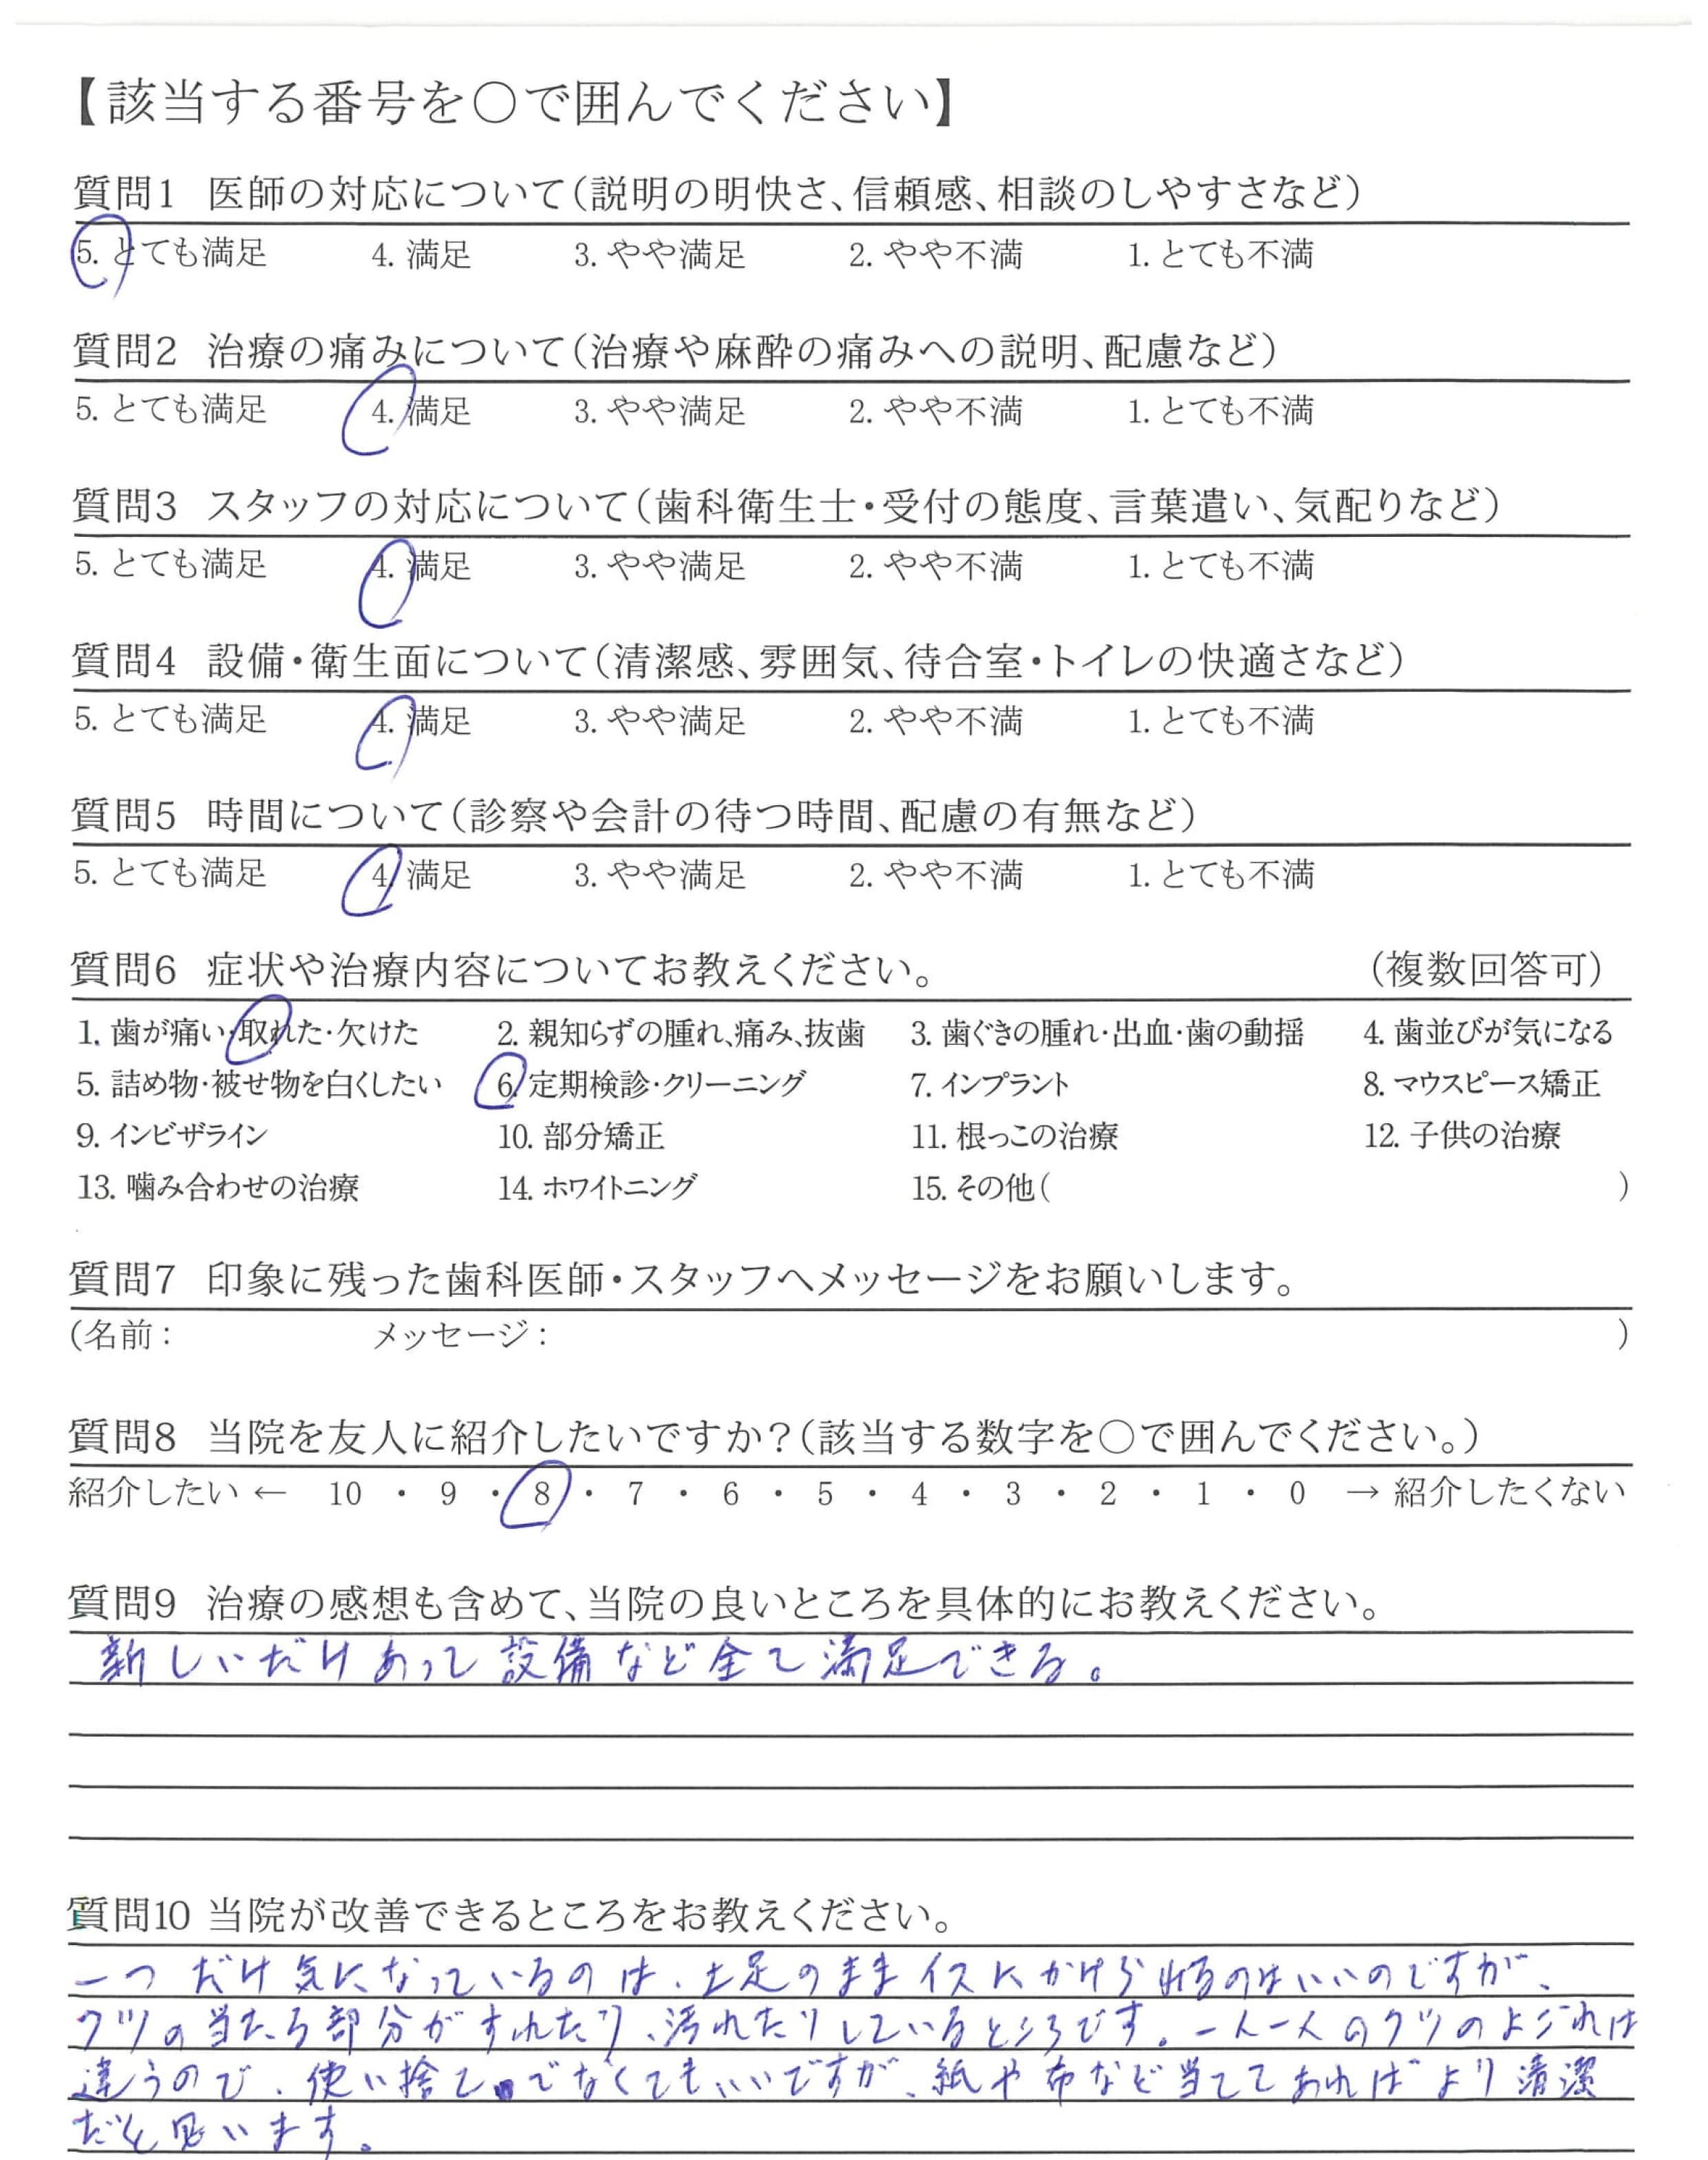 【該当する番号を〇で囲んでください】
質問1 医師の対応について(説明の明快さ、信頼感、相談のしやすさなど)
5. とても満足 4. 満足 3. やや満足 2. やや不満 1. とても不満
質問2 治療の痛みについて(治療や麻酔の痛みへの説明、配慮など)
5. とても満足 4. 満足 3. やや満足 2. やや不満 1. とても不満
質問3 スタッフの対応について(歯科衛生士・受付の態度、言葉遣い、気配りなど)
5. とても満足 4. 満足 3. やや満足 2. やや不満 1. とても不満
質問4 設備・衛生面について(清潔感、雰囲気、待合室・トイレの快適さなど)
5. とても満足 4. 満足 3. やや満足 2. やや不満 1. とても不満
質問5 時間について(診察や会計の待つ時間、配慮の有無など)
5. とても満足 4. 満足 3. やや満足 2. やや不満 1. とても不満
質問6 症状や治療内容についてお教えください。 (複数回答可)
1. 歯が痛い・取れた・欠けた 2. 親知らずの腫れ、痛み、抜歯 3. 歯ぐきの腫れ・出血・歯の動揺 4. 歯並びが気になる
5. 詰め物・被せ物を白くしたい 6. 定期検診・クリーニング 7. インプラント 8. マウスピース矯正
9. インビザライン 10. 部分矯正 11. 根っこの治療 12. 子供の治療
13. 噛み合わせの治療 14. ホワイトニング 15. その他( )
質問7 印象に残った歯科医師・スタッフへメッセージをお願いします。
(名前: メッセージ: )
質問8 当院を友人に紹介したいですか?(該当する数字を〇で囲んでください。)
紹介したい ← 10 ・ 9 ・ 8 ・ 7 ・ 6 ・ 5 ・ 4 ・ 3 ・ 2 ・ 1 ・ 0 → 紹介したくない
質問9 治療の感想も含めて、当院の良いところを具体的にお教えください。
新しいだけあって設備など全て満足できる。
質問10 当院が改善できるところをお教えください。
一つだけ気になっているのは、土足のままイスにかけられるのはいいのですが、
クツの当たる部分がすれたり、汚れたりしているところです。一人一人のクツのよごれは
違うので、使い捨てでなくてもいいですが、紙や布など当ててあればより清潔
だと思います。